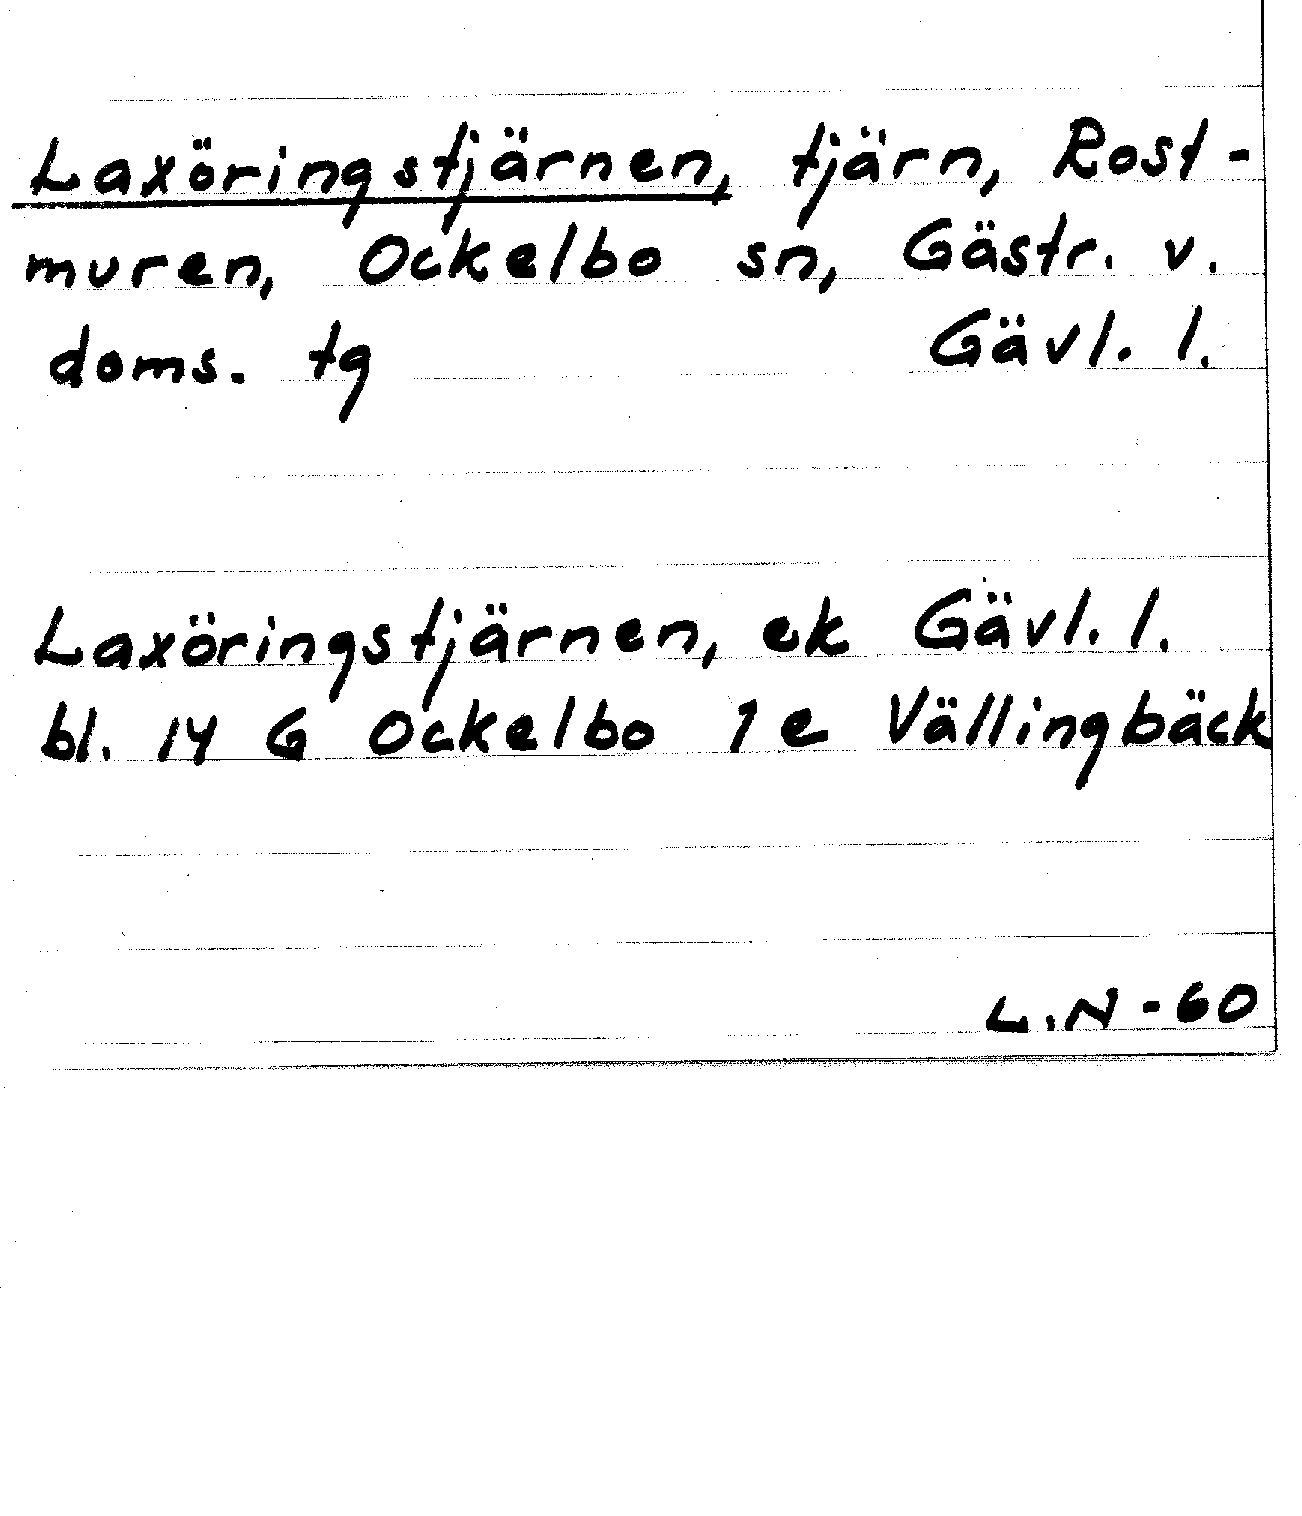 Laxöringstjärnen, tjärn, Rost-
muren, Ockelbo sn, Gästr. v.
doms. tg Gävl. l.
Laxöringstjärnen, ek Gävl. l.
bl. 14 G Ockelbo 1 e Vällingbäck
L.N-60